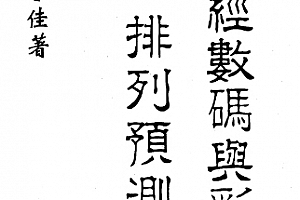 經數碼與彩
排列預測
佳著